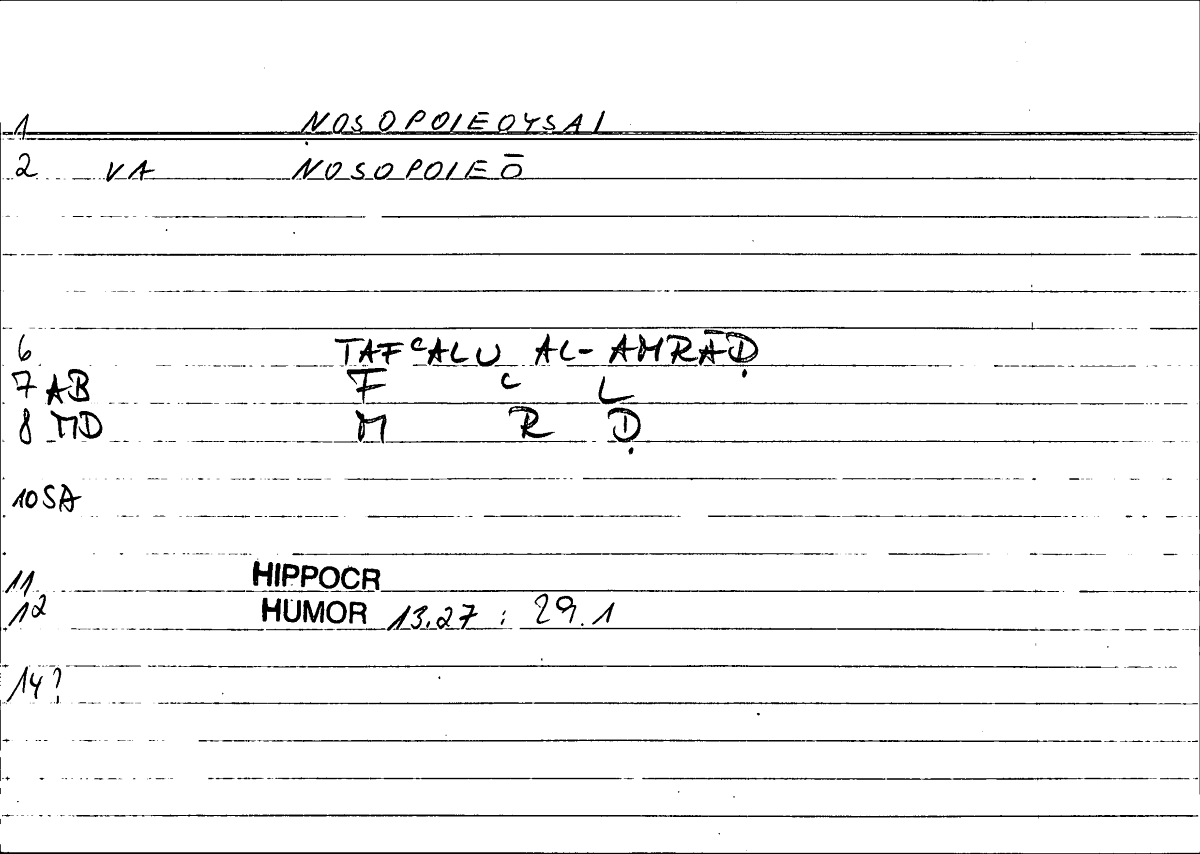 1 NOSOPOIEOYSAI
2 VA NOSOPOIEŌ
6 TAFʿALU AL-AMRĀḌ
7 AB F ʿ L
8 MD M R Ḍ
10 SA
11 HIPPOCR
12 HUMOR 13.27 : 29.1
14?